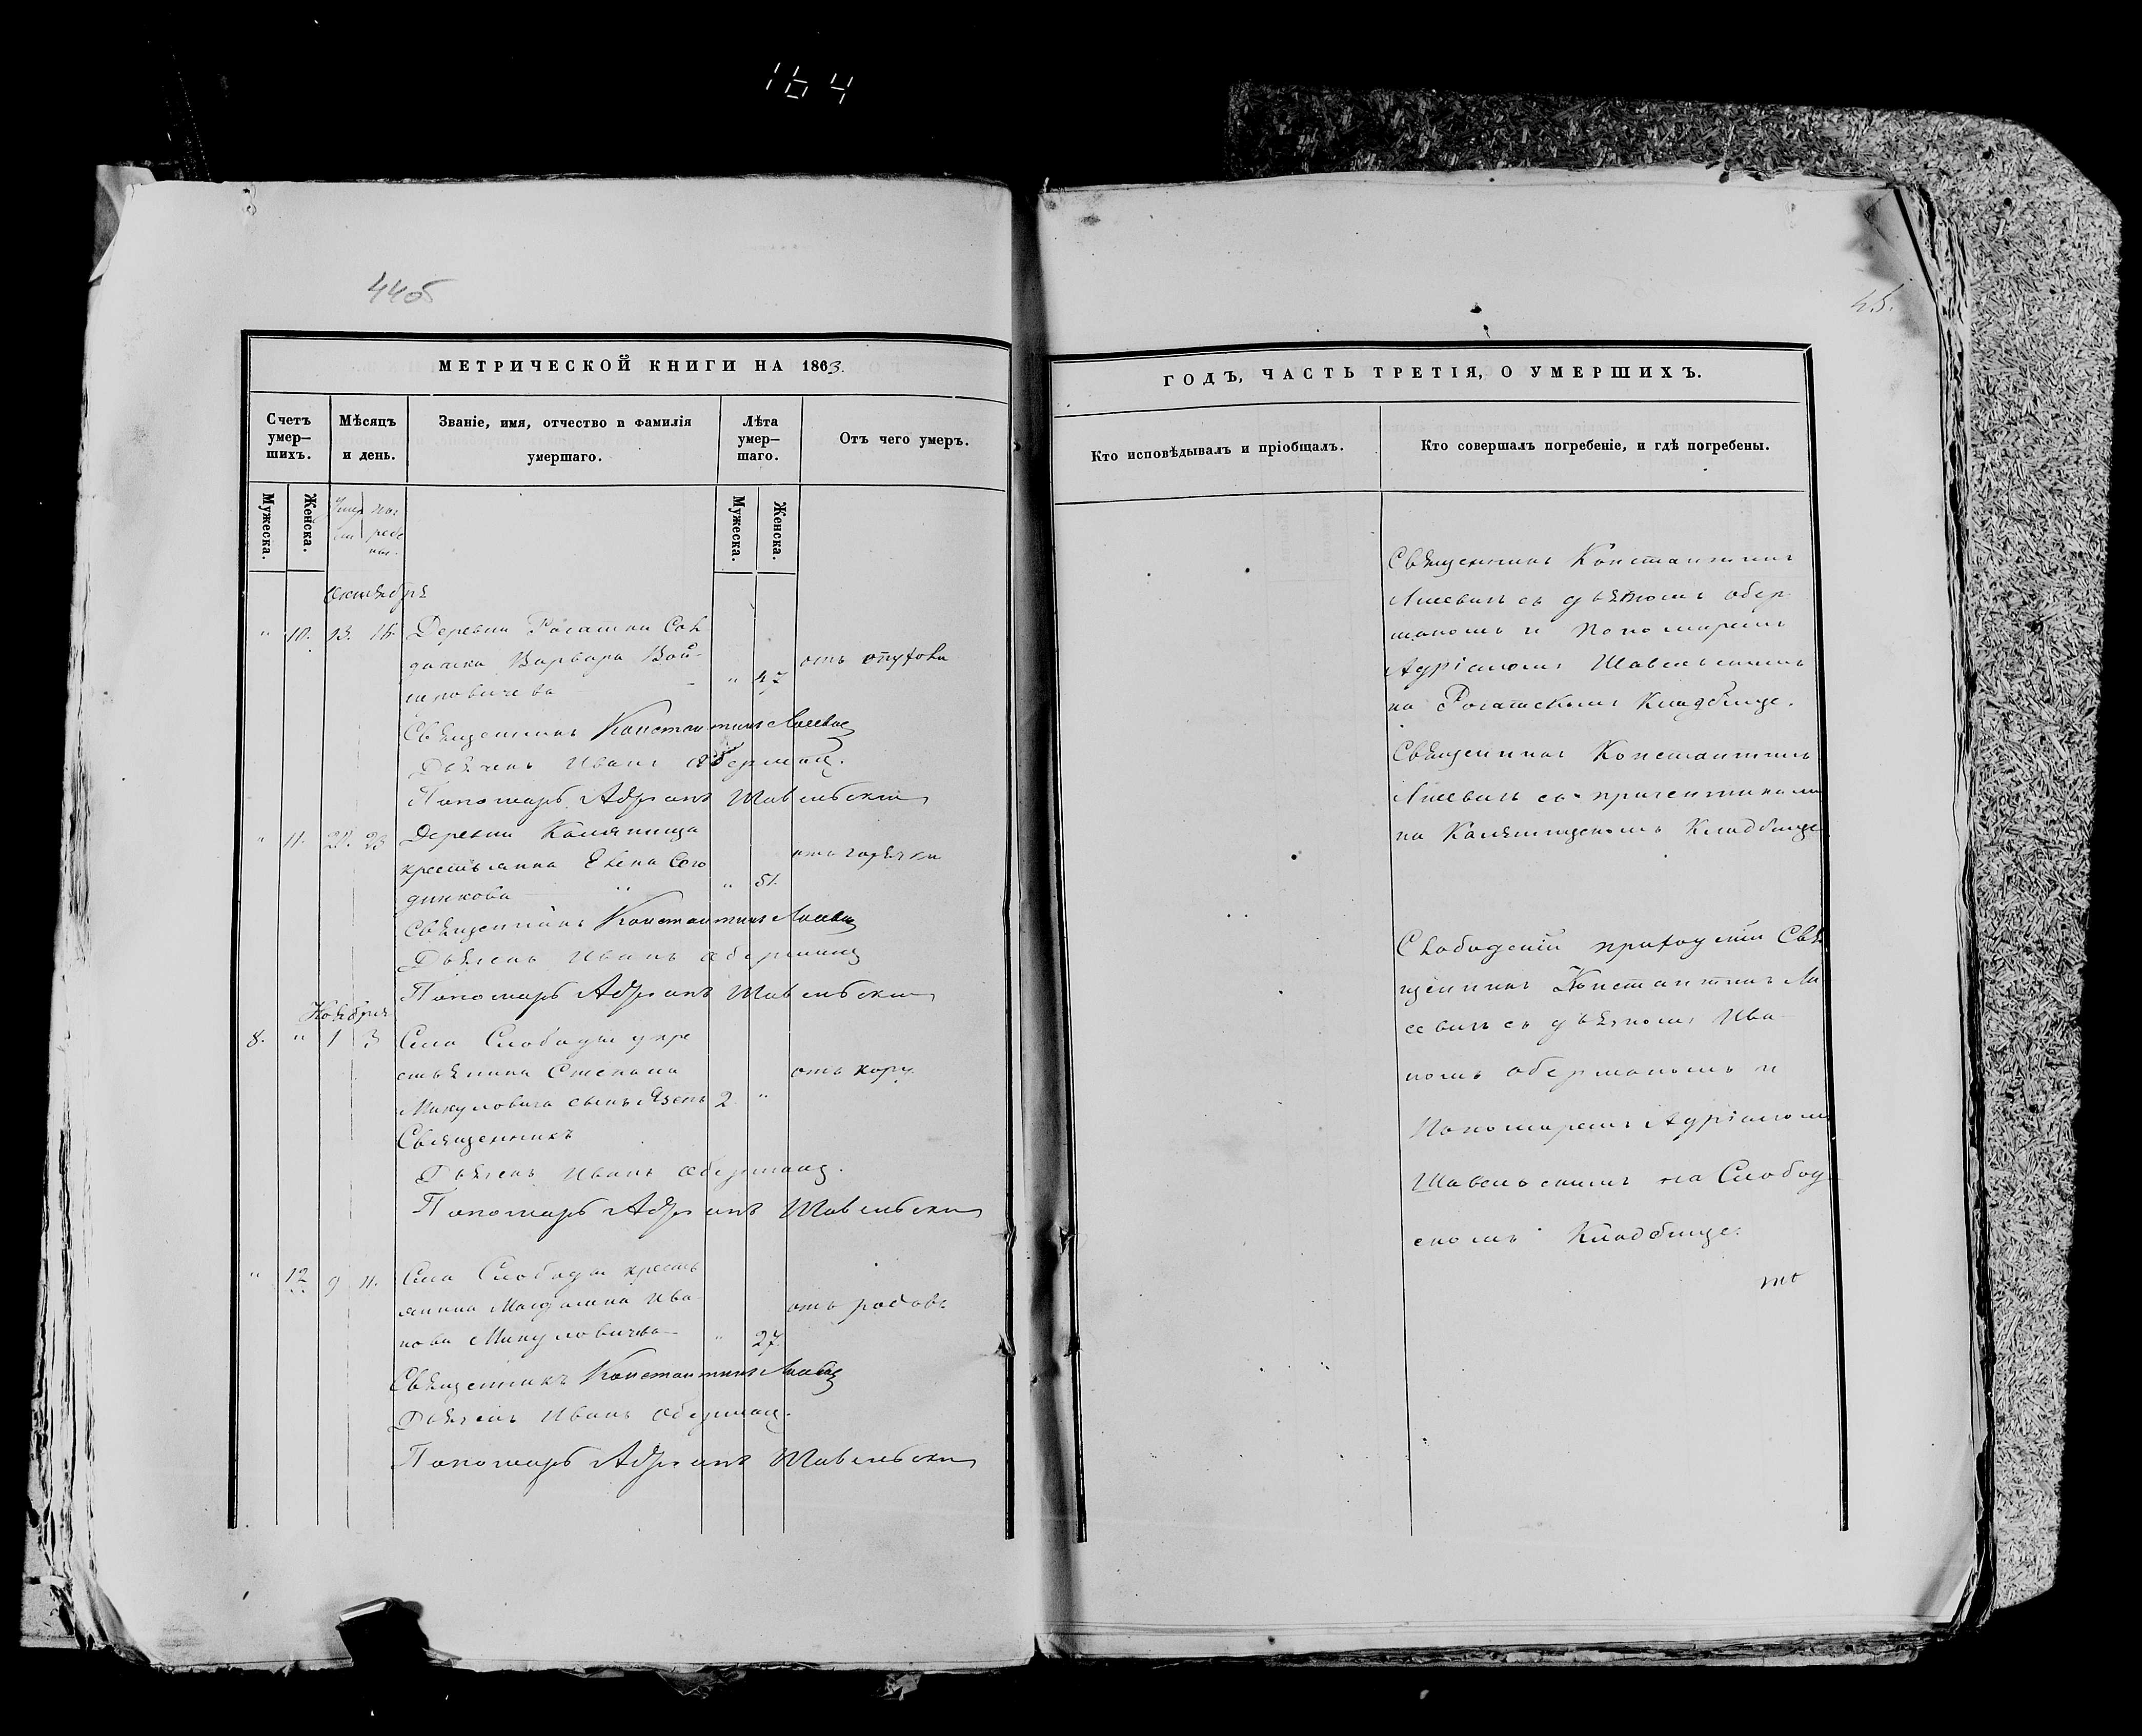 164
44об
45.
МЕТРИЧЕСКОЙ КНИГИ НА 1863.
Счетъ умер—шихъ.
Мѣсяцъ и день.
Званіе, имя, отчество и фамилія умершаго.
Лѣта умер—шаго.
Отъ чего умеръ.
Мужеска.
Женска.
Мужеска.
Женска.
Октября
" 10. 13. 16. Деревни Рогатки
Варвара
" 47 отъ
Священникъ Константинъ Лисевичъ
Дьячекъ Иванъ Оберманъ.
Пономарь Адріанъ Шавельскій
" 11. 21. 23 Деревни
Елена
отъ горячки
" 51.
Священникъ Константинъ Лисевичъ
Дьячекъ Иванъ Оберманъ
Пономарь Адріанъ Шавельскій
Ноября
8. " 1 3 Села Слободы у кре
стьянина Степана
отъ кору
Микуловича сынъ 2 "
Священникъ
Дьячекъ Иванъ Оберманъ.
Пономарь Адріанъ Шавельскій
" 12 9 11. Села Слободы кресть
янина Магдалина Ива
отъ родовъ
нова Микуловичева " 27.
Священникъ Константинъ Лисевичъ
Дьячекъ Иванъ Оберманъ.
Пономарь Адріанъ Шавельскій
ГОДЪ, ЧАСТЬ ТРЕТІЯ, О УМЕРШИХЪ.
Кто исповѣдывалъ и пріобщалъ.
Кто совершалъ погребеніе, и гдѣ погребены.
Священникъ Константинъ
Лисевичъ съ дьячкомъ Обер
маномъ и Пономаремъ
Адріаномъ Шавельскимъ
на Рогатскомъ Кладбище.
Священникъ Константинъ
Лисевичъ съ причетниками
на Кладбище
Слободскій приходскій Свя
щенникъ Константинъ Ли
севичъ съ дьячкомъ Ива
номъ Оберманомъ и
Пономаремъ Адріаномъ
Шавельскимъ на Слобод
скомъ Кладбище.